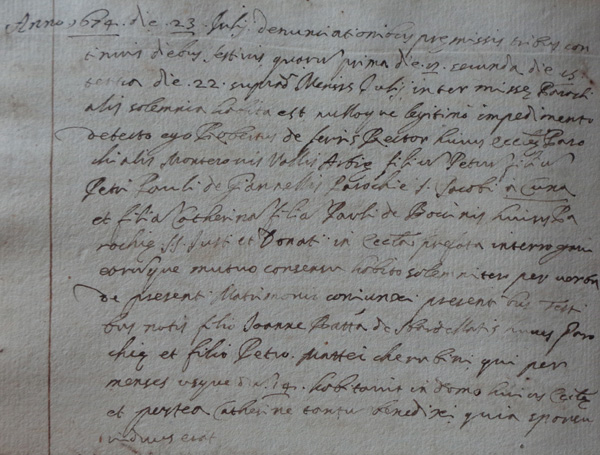 Anno 1674. die 23. Julij denunciationibus premissis tribus con
tinuis diebus festivis quarum prima die 12. secunda die 15
tertia die 22. suprad. Mensis Julij inter missę Paroch
ialis solemnia habita est nulloque legitimo impedimento
detecto ego de ferris Rector huius eccłę Paro
chialis Monteronis Vallis Arbię filiū Petrū filiū
Petri Pauli de Giannellis Parochię S. Jacobi a Cuna
et filiā Catherinā filiā Pauli de Bocinis huius Pa
rochię SS. Justi et Donati in Eccła prefata interrogavi
eorūque mutuo consensu habito solemniter per verba
de presenti Matrimonio coniunxi presentibus Testi
bus notis filio Joanne Batta de huius Paro
chię et filio Petro Mattei cherubini qui per
menses usque habitavit in domo huius Eccłę
et postea Catherinę tantū benedixi quia sponsus
viduus erat